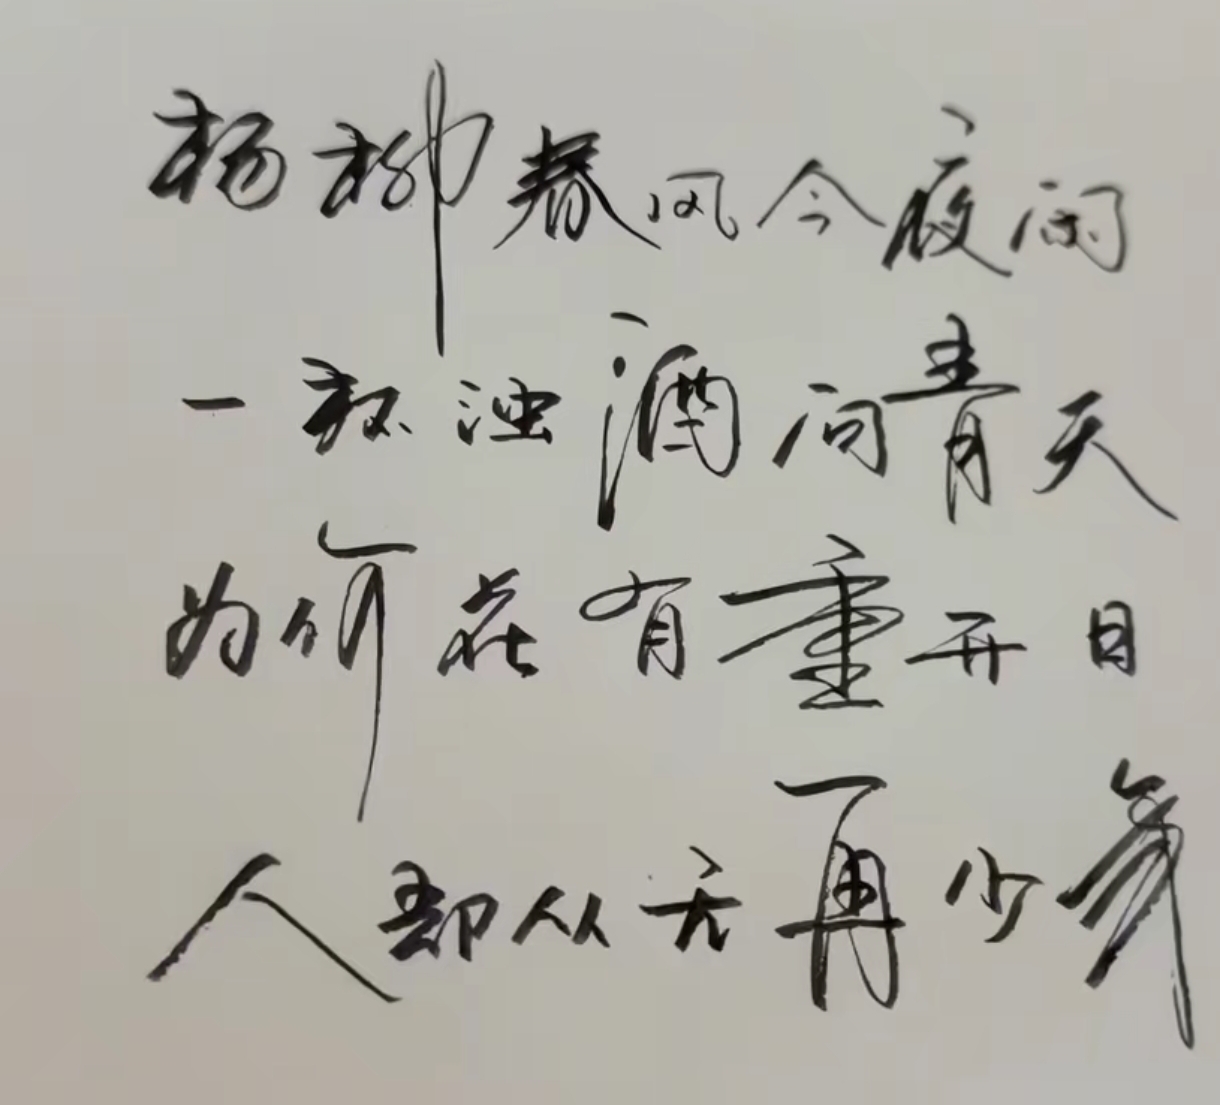 杨柳春风今夜闲
一杯浊酒问青天
为何花有重开日
人却从无再少年